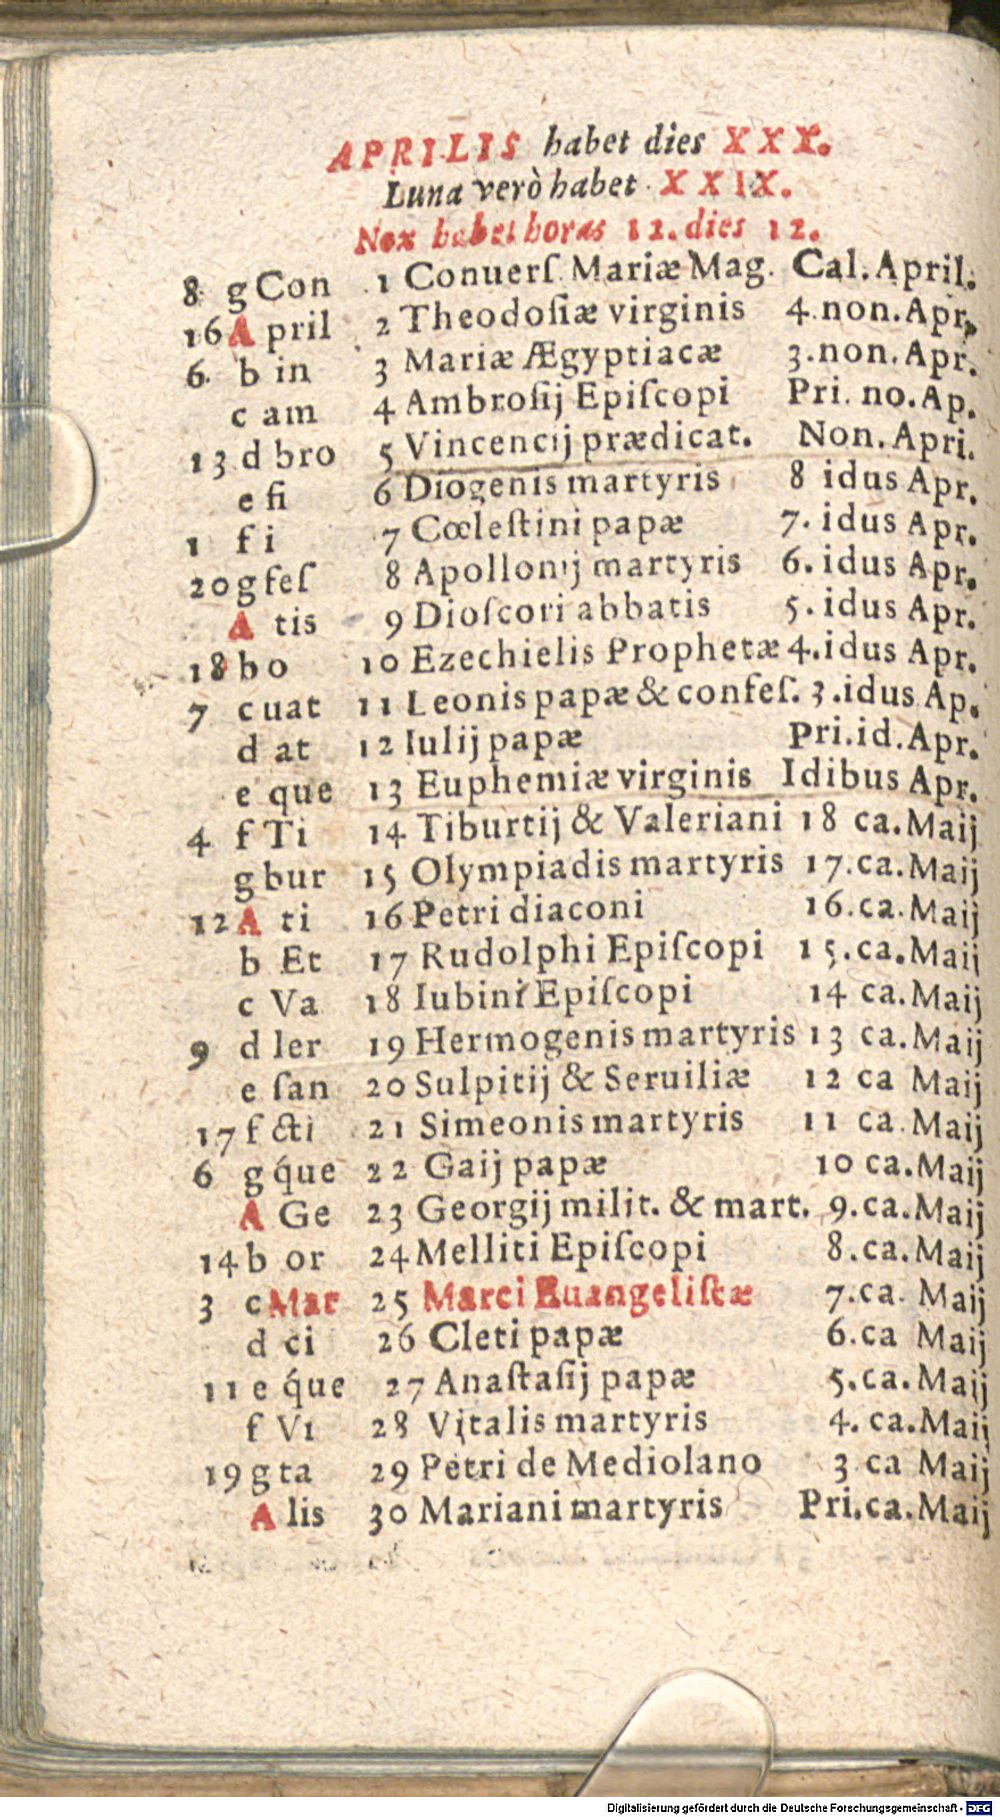 APRILIS habet dies XXX.
Luna verò habet XXIX.
Nox habet horas 12. dies 12.
8 g Con 1 Conuerſ. Mariæ Mag. Cal. April.
16 A pril 2 Theodoſiæ virginis 4. non. Apr.
6. b in 3 Mariæ Ægyptiacæ 3. non. Apr.
c am 4 Ambroſij Epiſcopi Pri. no. Ap.
13 d bro 5 Vincencij prædicat. Non. Apri.
e ſi 6 Diogenis martyris 8 idus Apr.
1 f i 7 Cœleſtini papæ 7. idus Apr.
20 g feſ 8 Apollonij martyris 6. idus Apr.
A tis 9 Dioſcori abbatis 5. idus Apr.
18 b o 10 Ezechielis Prophetæ 4. idus Apr.
7 c uat 11 Leonis papæ & confeſ. 3. idus Ap.
d at 12 Iulij papæ Pri. id. Apr.
e que 13 Euphemiæ virginis Idibus Apr.
4 f Ti 14 Tiburtij & Valeriani 18 ca. Maij
g bur 15 Olympiadis martyris 17. ca. Maij
12 A ti 16 Petri diaconi 16. ca. Maij
b Et 17 Rudolphi Epiſcopi 15. ca. Maij
c Va 18 Iubini Epiſcopi 14 ca. Maij
9 d ler 19 Hermogenis martyris 13 ca. Maij
e ſan 20 Sulpitij & Seruiliæ 12 ca Maij
17 f cti 21 Simeonis martyris 11 ca. Maij
6 g q́ue 22 Gaij papæ 10 ca. Maij
A Ge 23 Georgij milit. & mart. 9. ca. Maij
14 b or 24 Melliti Epiſcopi 8. ca. Maij
3 c Mar 25 Marci Euangeliſtæ 7. ca. Maij
d ci 26 Cleti papæ 6. ca Maij
11 e q́ue 27 Anaſtaſij papæ 5. ca. Maij
f Vi 28 Vitalis martyris 4. ca. Maij
19 g ta 29 Petri de Mediolano 3 ca Maij
A lis 30 Mariani martyris Pri. ca. Maij
Digitalisierung gefördert durch die Deutsche Forschungsgemeinschaft - DFG